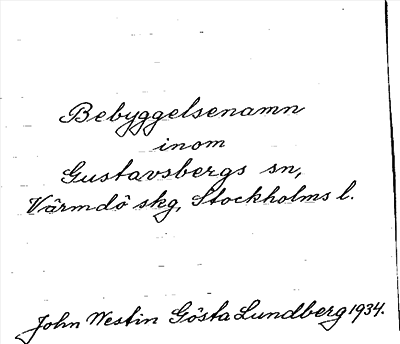 Bebyggelsenamn
inom
Gustavsbergs sn,
Värmdö skg, Stockholms l.
John Westin Gösta Lundberg 1934.